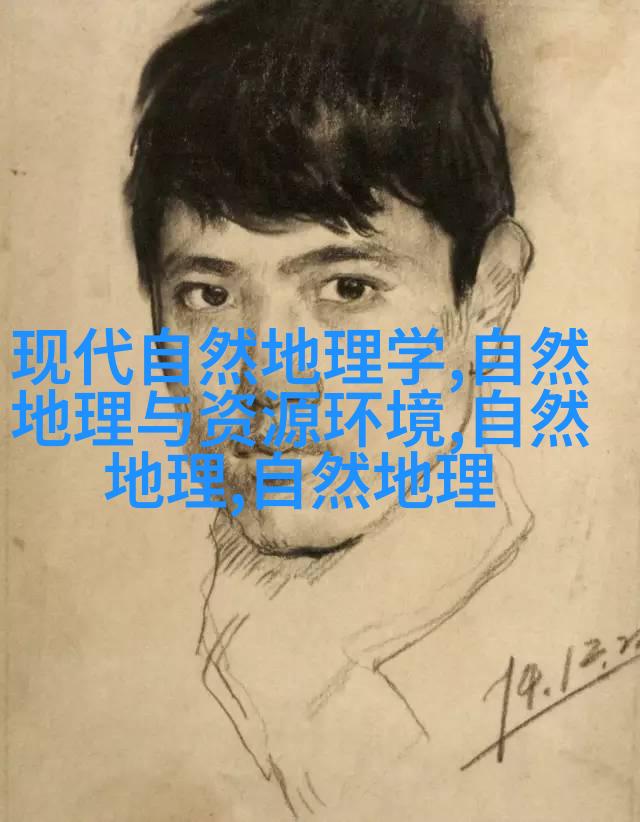 现代自然地理学,自然
地理与资源环境,自然
地理,自然地理
74.12.2